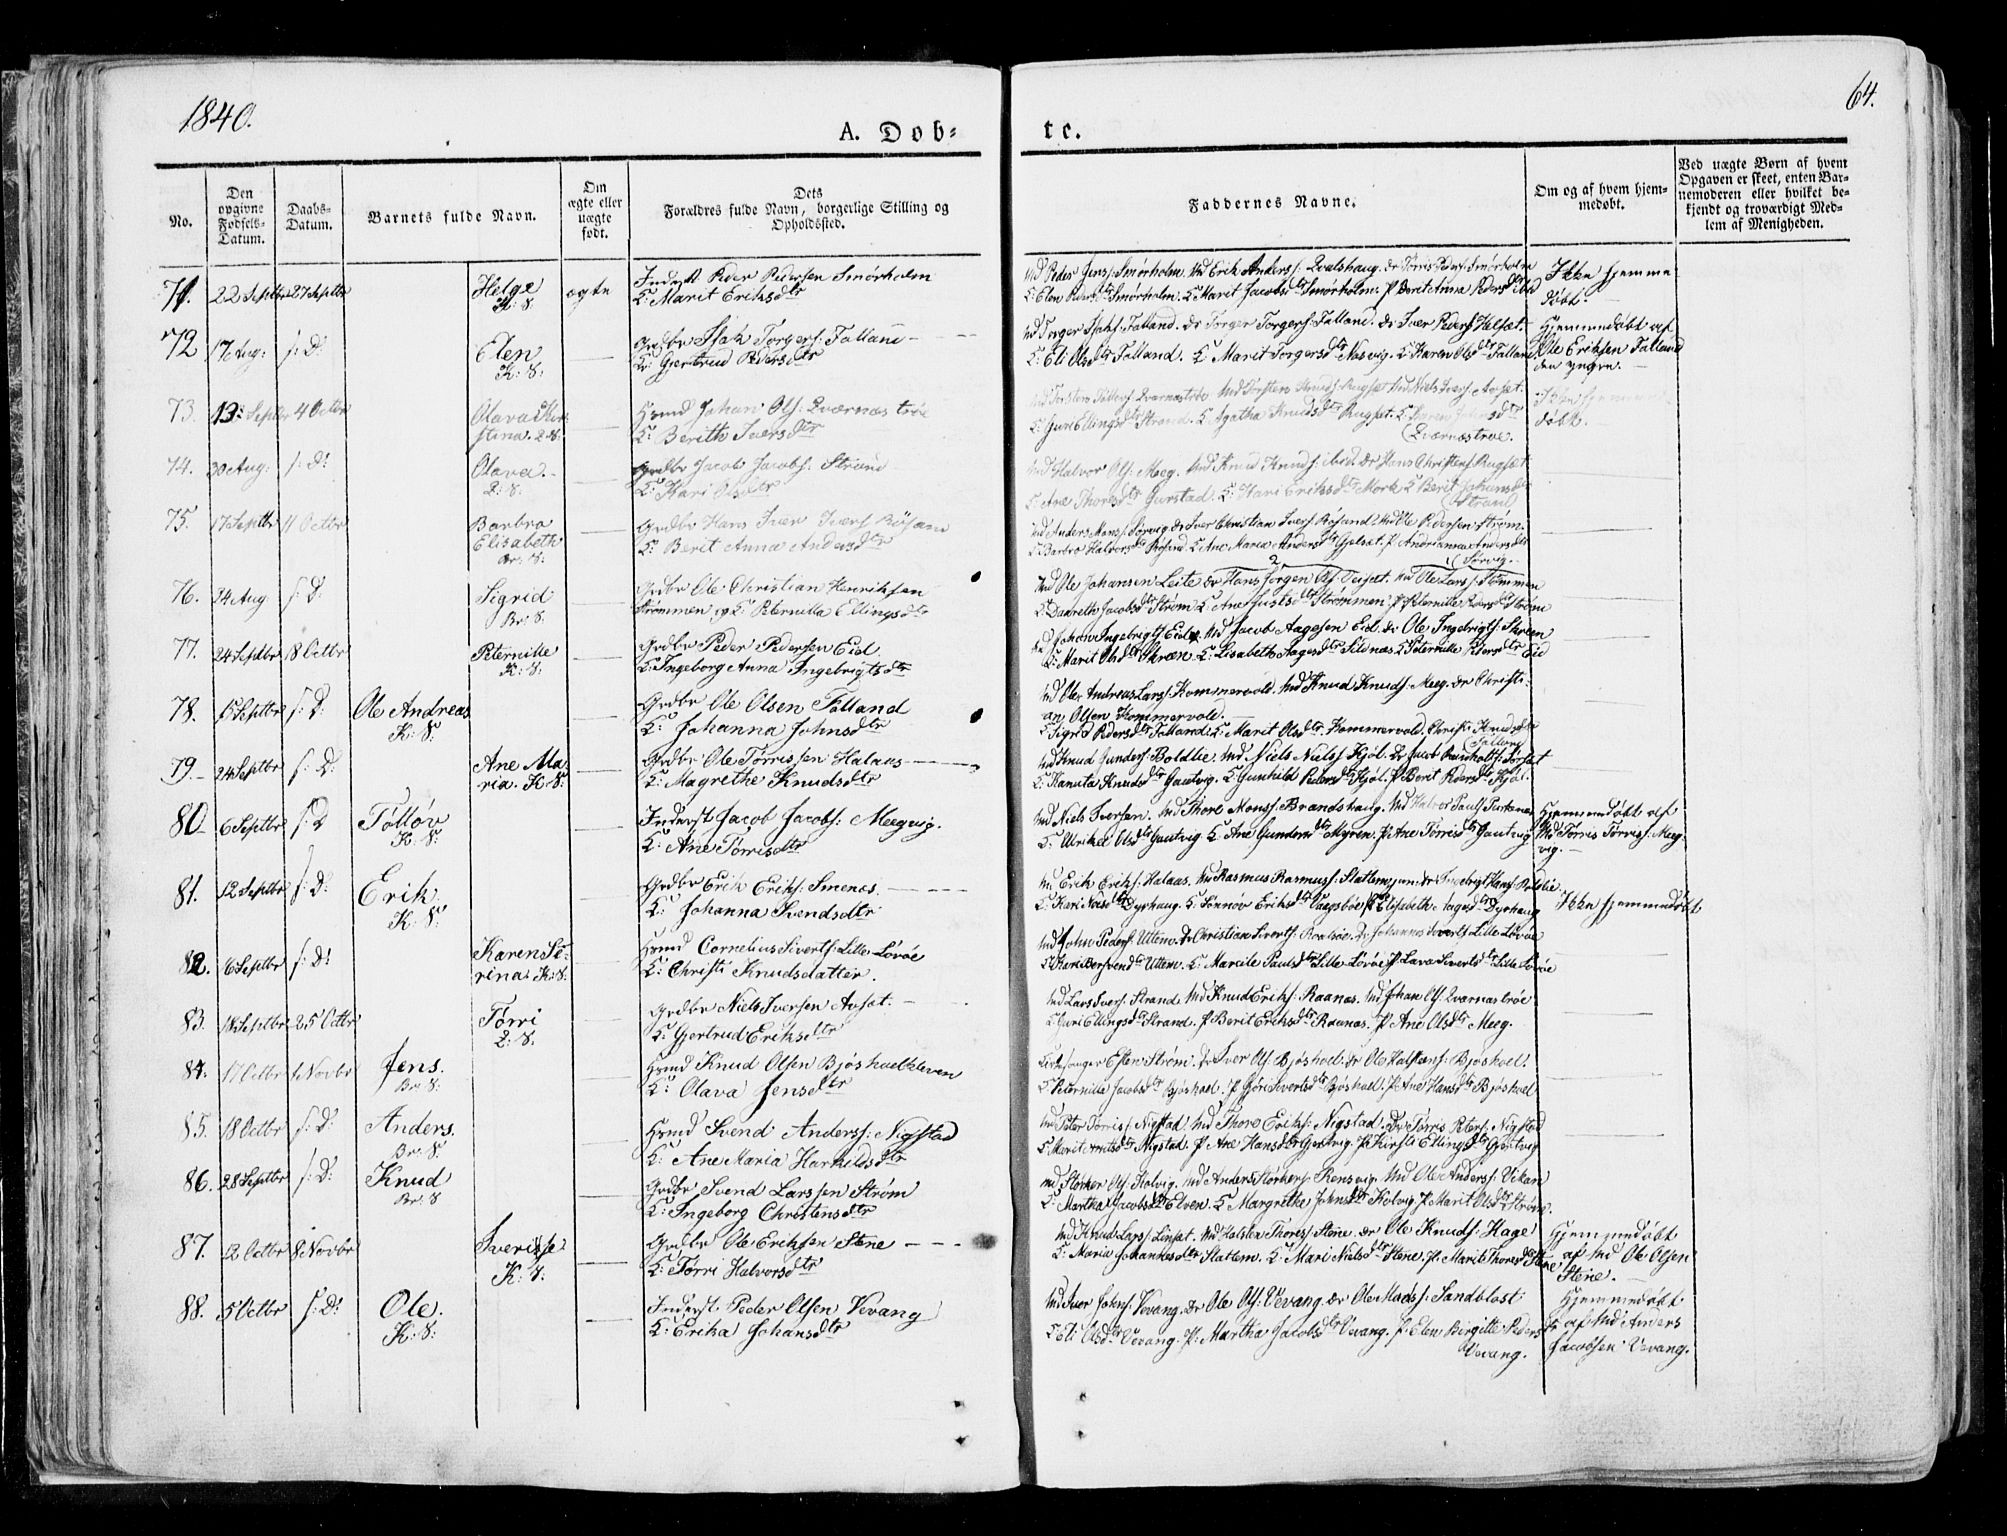 1840.
64.
A. Døb-
te.
No.
Den opgivne Fødsels-Datum.
Daabs-Datum.
Barnets fulde Navn.
Om ægte eller uægte født.
Dets Forældres fulde Navn, borgerlige Stilling og Opholdssted.
Faddernes Navne.
Om og af hvem hjem-medøbt.
Ved uægte Børn af hvem Opgaven er skeet, enten Bar-nemoderen eller hvilket be-kjendt og troværdigt Med-lem af Menigheden.
71. 22 Septbr 27 Septbr Helge K: S: ægte
Inderst Peder Pedersen Smørholm
K: Marit Eriksdtr
Md Peder Jens: Smørholm. Md Erik Anders: Qvalshaug. Dr Tørris Peders: Smørholm
K: Elen Pedersdtr Smørholm. K: Marit Jacobsdtr Smørholm. P: Berit Anna Pedersdtr ibid
Ikke hjemme
døbt.
72 17 Aug: s: D: Elen K: S:
Grdbr Isak Torgers: Falland
K: Gjertrud Pedersdtr
Md Torger Isaks: Falland. Dr Torger Torgers: Falland. Dr Iver Peders: Helset.
K: Eli Olsdtr Falland. K: Marit Torgersdtr Nasvig. K: Karen Olsdtr Falland
Hjemmedøbt af
Ole Eriksen Falland
den yngre.
73. 13 Septbr 4 Octbr Olava Kir-
stina. Q. S:
Hsmd Johan Ols: Qværnæstrøe
K: Berith Iversdtr
K: Guri Ellingsdtr Strand. K: Agatha Knudsdtr Rugset. K: Karen Johnsdtr
Qværnæstrøe.
Ikke hjemme
døbt.
74. 30 Aug: s: D: Olava. Q: S:
Grdbr Jacob Jacobs: Strand
K: Kari Olsdtr
Md Halvor Ols: Meeg. Md Knud Knuds: ibid. Dr Hans Christens: Rugset
K: Ane Thoresdtr Gurstad. K: Kari Eriksdtr Mork. K: Berit Johansdtr
Strand
75. 17 Septbr 11 Octbr Barbro
Elisabeth
Br: S:
Grdbr Hans Iver Ivers: Røsand
K: Berit Anna Andersdtr
Md Anders Mons: Sørvig. Dr Iver Christian Ivers: Røsand. Md Ole Pedersen Strøm.
K: Barbro Halvorsdtr Røsand. K: Ane Maria Andersdtr Gjelset. P: Andrianna Andersdtr
Sørvig.
76. 24 Aug s: D: Sigrid
Br: S:
Grdbr Ole Christian Henriksen
Strømmen, og K: Peternilla Ellingsdtr
Md Ole Johansen Leite Dr Hans Jørgen Ols: Teiset. Md Ole Lars: Strømmen
K: Dorreth Jacobsdtr Strøm. K: Ane Justsdtr Strømmen. P: Peternille Pedersdtr Strøm
77. 24 Septbr 18 Octbr Peternille
K: S:
Grdbr Peder Pedersen Eid.
K: Ingeborg Anna Ingebrigtsdtr
Md Johan Ingebrigts: Eide. Md Jacob Aagesen Eid. Dr Ole Ingebrigts: Skreen
K: Marit Olsdtr Skræen. K: Lisabeth Aagesdtr Silnæs. K: Peternille Pedersdtr Eid
78. 15 Septbr s: D: Ole Andreas
K: S:
Grdbr Ole Olsen Talland
K: Johanna Johnsdtr
Md Ole Andreas Lars: Hommervold. Md Knud Knuds: Meeg. Dr Christi-
an Olsen Hommervold.
K: Sigrid Pedersdtr Talland. K: Marit Olsdtr Hommervold.
79. 24 Septbr s: D: Ane Ma
ria. K: S:
Grdbr Ole Tørrissen Halaas
K: Magrethe Knudsdtr
Md Knud Gunders: Boldlie. Md Niels Niels: Kjøl.
K: Kanuta Knudsdtr Gautvig. K: Gunhild Pedersdtr Kjøl. P: Berit Pedersdtr Kjøl.
80 6 Septbr s: D Tølløv
K: S:
Inderst Jacob Jacobs: Meegvig.
K: Ane Tørrisdtr
Md Niels Iversen. Md Thore Mons: Brandshaug.
K: Ulrikel Olsdtr Gautvig. K: Ane Gundersdtr Myren. P: Ane Tørrisdtr Gautvig
Hjemmedøbt af
Md Tørris Tørris: Meeg-
vig.
81. 12 Septbr s: D: Erik.
K: S:
Grdbr Erik Eriks: Smenæs.
K: Johanna Svendsdtr
Md Erik Eriks: Halaas. Md Rasmus Rasmuss: Slatlem
K: Kari Nilsdtr Dyrhaug. K: Sønnøv Eriksdtr Vaagsbøe. P: Elisabeth Aagesdtr Dyrhaug
Ikke hjemmedøbt
82. 16 Septbr s: D: Karen Se-
rina. K: S:
Hsmd Cornelius Siverts: Lille Lørøe
K: Christi Knudsdatter.
Md John Peders: Uttem. Dr Christian Siverts: Dr Johannes Siverts: Lille Lørøe
K: Kari Bersvendsdtr Uttem. K: Marcile Paulsdtr Lille Lørøe. P: Lava Sivertsdtr Lille Lørøe
83. 18 Septbr 25 Octbr Tørri
Q: S:
Grdbr Niels Iversen Aaset.
K: Gjertrud Eriksdtr
Md Lars Ivers: Strand. Md Knud Eriks: Raanæs. Md Johan Ols: Qværnæstrøe
K: Guri Ellingsdtr Strand. P: Berit Eriksdtr Raanæs. P: Ane Olsdtr Meeg.
84. 17 Octbr 1 Novbr Jens.
Br: S:
Hsmd Knud Olsen Bjøshaelkleven
K: Olava Jensdtr
Kirkesanger Esten Strøm. Dr Iver Ols: Bjøshoel. Dr Ole Halstens: Bjøshoel.
K: Peternilla Jacobsdtr Bjøshoel. P: Gjøri Sivertsdtr Bjøshoel. P: Ane Hansdtr Bjøshoel
85. 18 Octbr s: D: Anders.
Br: S:
Hsmd Svend Anders: Nigstad
K: Ane Maria Harkildsdtr
Md Peter Tørris: Nigstad. Md Thore Eriks: Nigstad. Dr Tørris Peters: Nigstad
K: Marit Arntsdtr Nigstad. P: Ane Hansdtr Gjøtvig. P: Kirsti Ellingsdtr Gjøtvig
86. 28 Septbr s: D: Knud
Br: S
Grdbr Svend Larssen Strøm
K: Ingeborg Christensdtr
Md Størker Ols: Holvig. Md Anders Størkers: Rensvig. Md Ole Anders: Vikan
K: Martha Jacobsdtr Elven. K: Margrethe Johnsdtr Holvig. P: Marit Olsdtr Strøm.
87. 12 Octbr 8 Novbr Sverisse
K: S:
Grdbr Ole Eriksen Stene
K: Tørri Halvorsdtr
Md Knud Lars: Linset. Md Halsten Thores: Stene. Dr Ole Knuds: Hage
K: Maria Johannesdtr Slatlem. K: Mari Nielsdtr Stene. P: Marit Thoresdtr Stene
Hjemmedøbt
af Md Ole Olsen
Stene.
88. 5 Octbr s: D: Ole.
K: S:
Inderst Peder Olsen Vevang
K: Erika Johansdtr
Md Iver Johns: Vevang. Dr Ole Ols: Vevang. Dr Ole Mads: Sandblost
K: Eli Olsdtr Vevang. P: Martha Jacobsdtr Vevang. P: Elen Birgitte Peders
Vevang.
Hjemmedøbt
af Md Anders
Jacobsen Vevang.